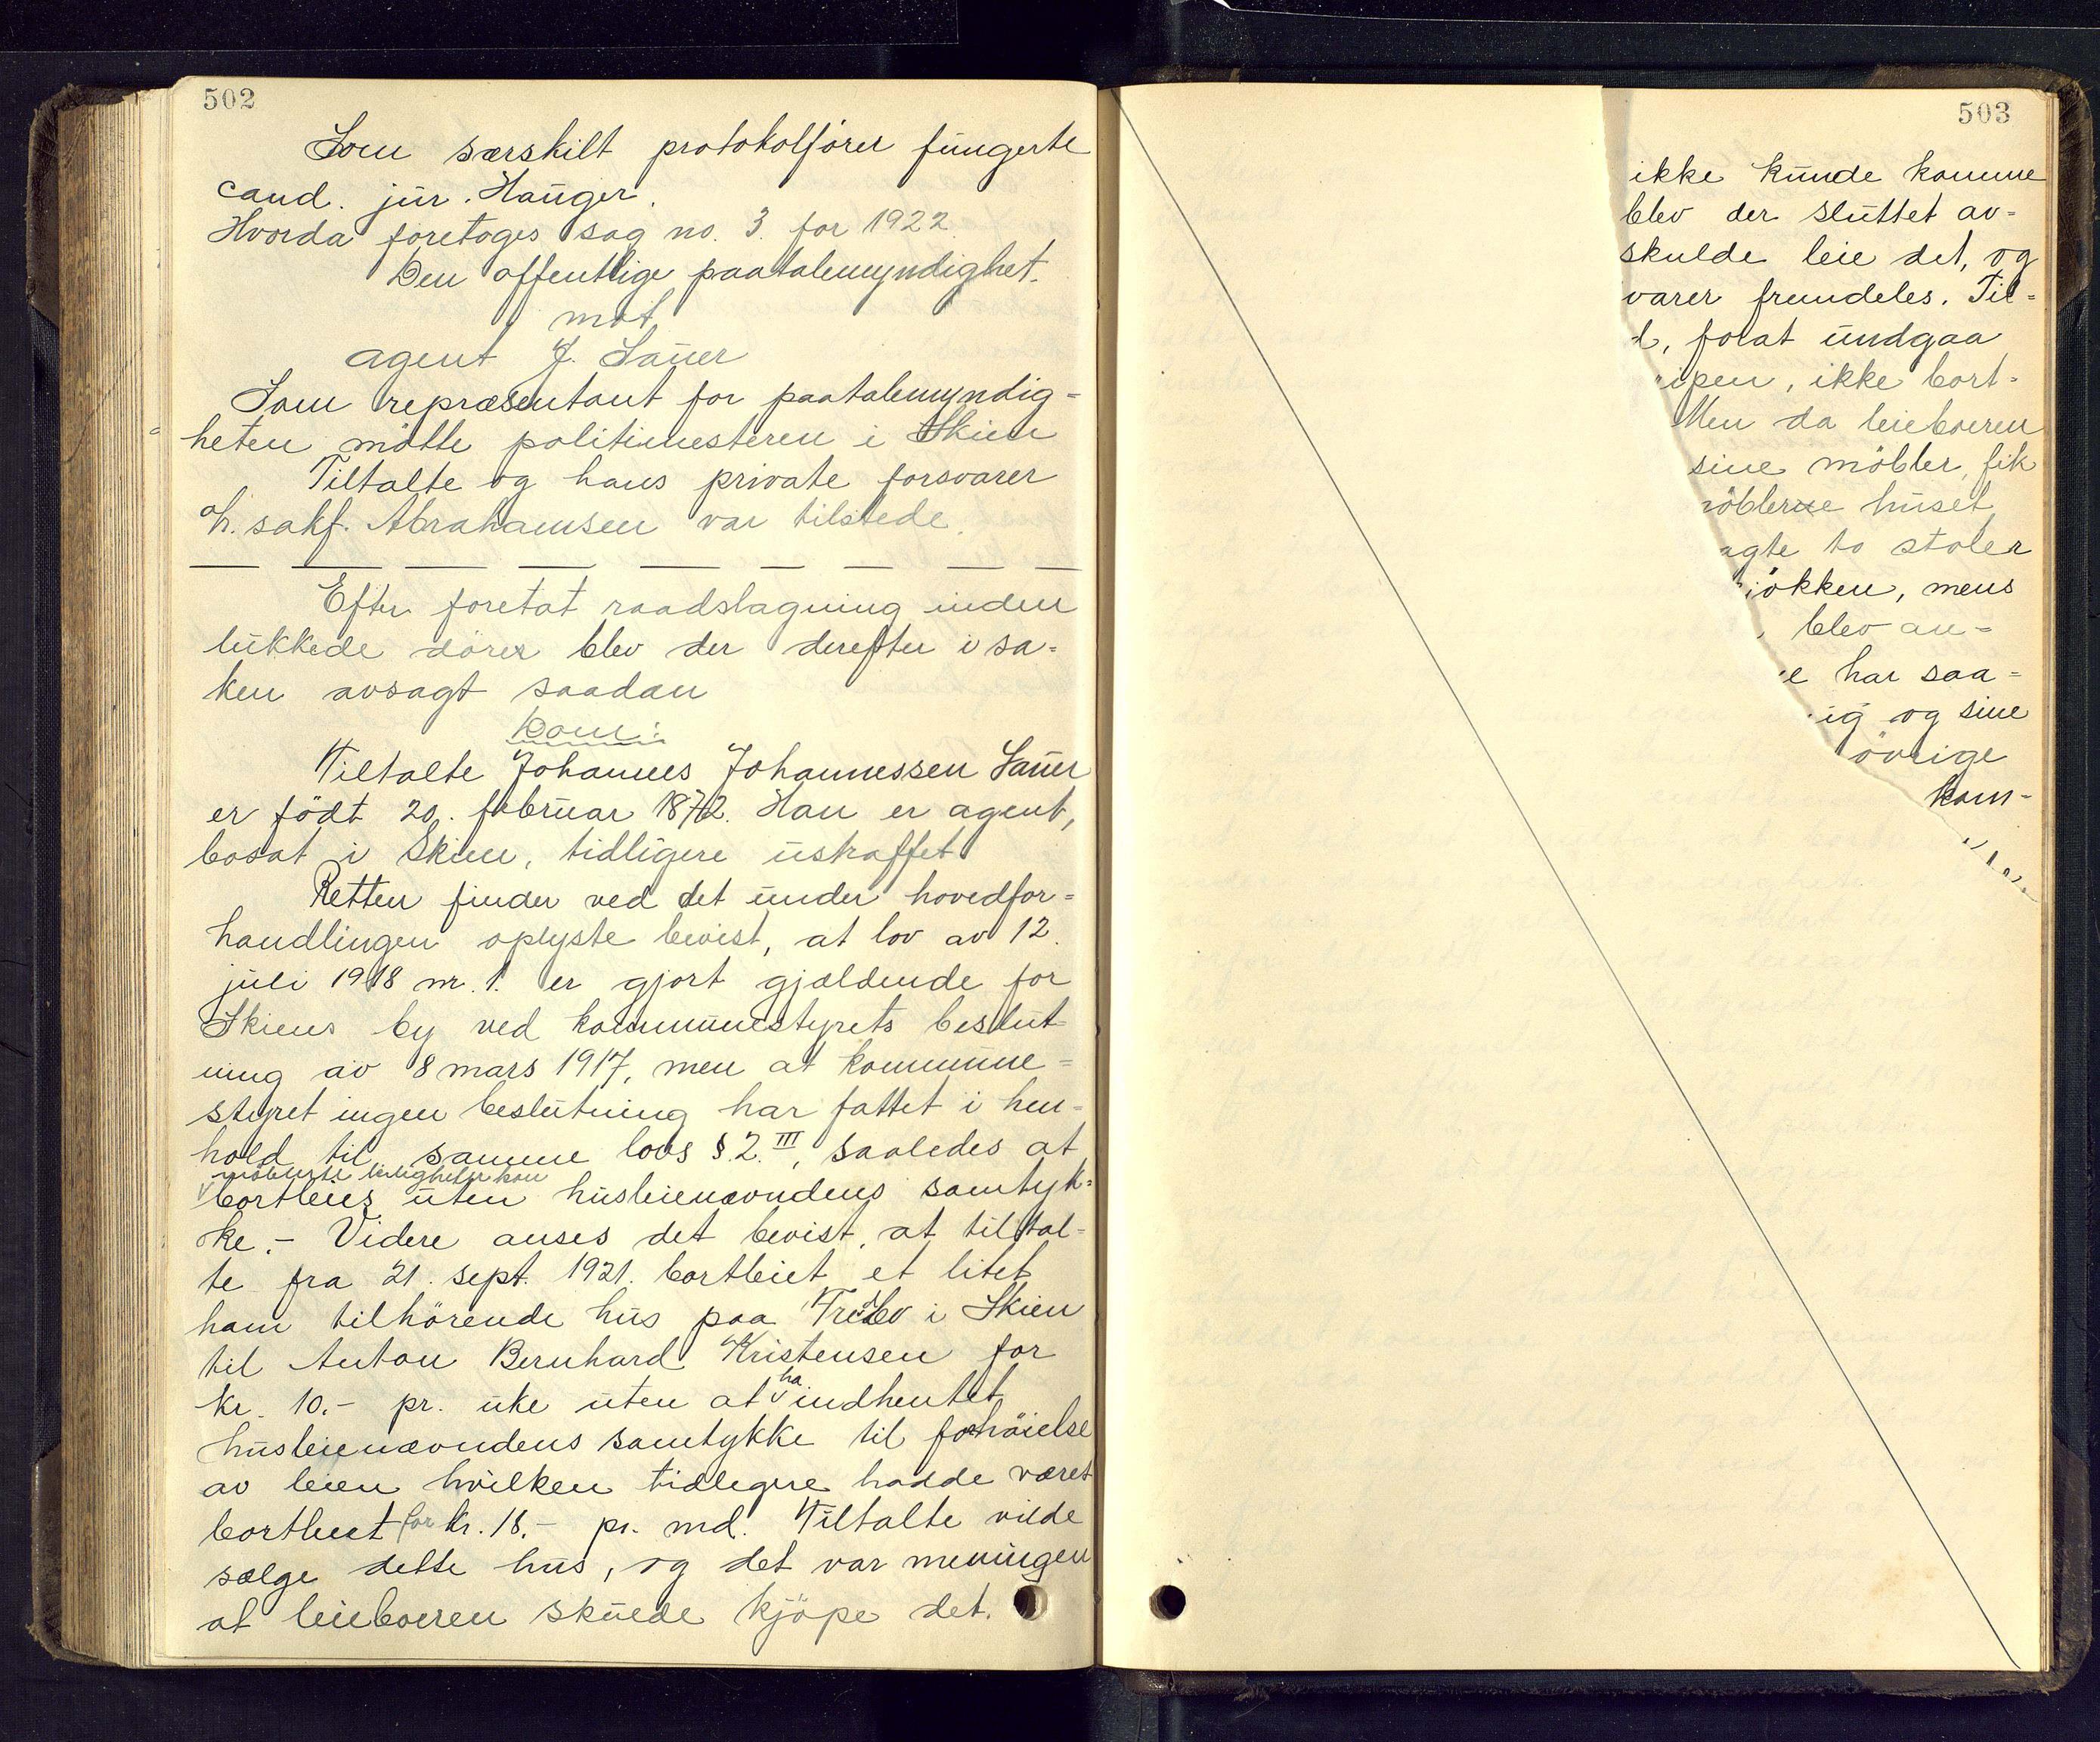 502
Som særskilt protokolfører fungerte
cand. jur. Hauger.
Hvorda foretoges sag no. 3. for 1922.
Den offentlige paatalemyndighet.
mot
agent J. Sauer
Som repræsentant for paatalemyndig=
heten møtte politimesteren i Skien
Tiltalte og hans private forsvarer
o.r. sakf. Abrahamsen var tilstede.
Efter foretat raadslagning inden
lukkede dører blev der derefter i sa=
ken avsagt saadan
Dom:
Tiltalte Johannes Johannessen Sauer
er født 20. februar 1872. Han er agent,
bosat i Skien, tidligere ustraffet.
Retten finder ved det under hovedfor=
handlingen oplyste bevist, at lov av 12.
juli 1918 nr. 1. er gjort gjældende for
Skiens by ved kommunestyrets beslut=
ning av 8 mars 1917, men at kommune=
styret ingen beslutning har fattet i hen=
hold til samme lovs §. 2. III, saaledes at
møblerte leiligheter kan
bortleies uten husleienævndens samtyk=
ke. - Videre anses det bevist, at tiltal=
te fra 21. sept. 1921. bortleiet et litet
ham tilhørende hus paa i Skien
til Anton Bernhard Kristensen for
ha
kr. 10.- pr. uke uten at v indhentet
husleienævndens samtykke til forhøielse
av leien hvilken tidligere hadde været
bortleiet for kr. 18.- pr. md. Tiltalte vilde
sælge dette hus, og det var meningen
at leieboeren skulde kjøpe det.
503
ikke kunde komme
blev der sluttet av=
skulde leie det, og
varer fremdeles. Til=
t, forat undgaa
ipen, ikke bort=
Men da leieboeren
sine møbler, fik
øblerne huset
agte to stoler
jøkken, mens
, blev an=
e har saa=
ig og sine
øvrige
kom-